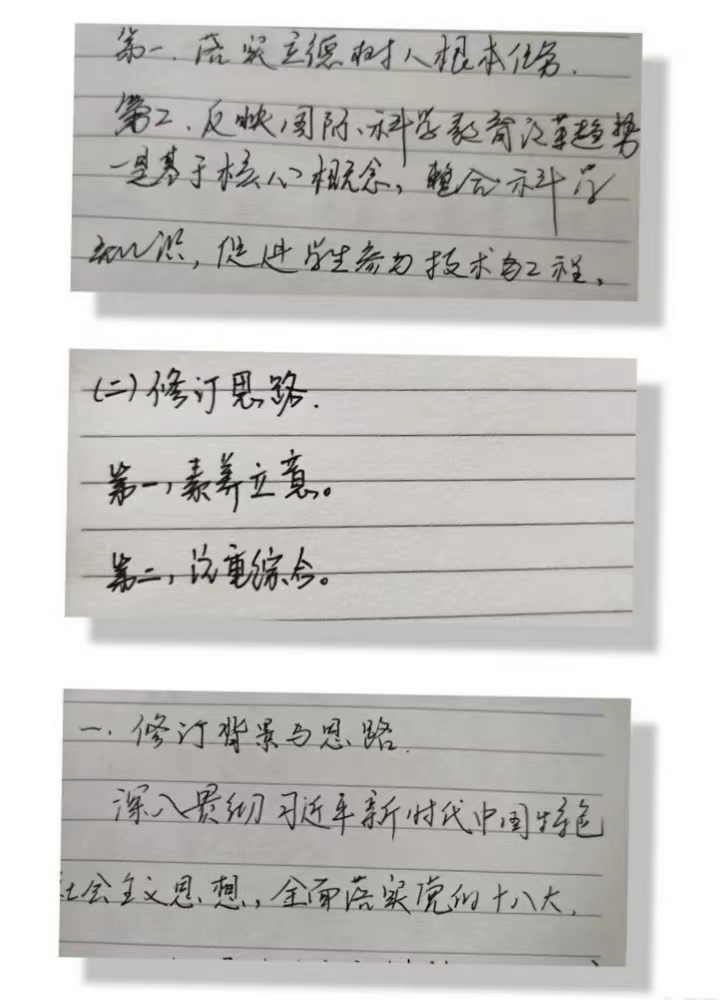 第一.落实立德树人根本任务.
第二.反映国际科学教育改革趋势
一是基于核心概念,整合科学
知识,促进学生参与技术与工程,
(二)修订思路.
第一,素养立意。
第二,注重综合。
一.修订背景与思路.
深入贯彻习近平新时代中国特色
社会主义思想,全面落实党的十八大,